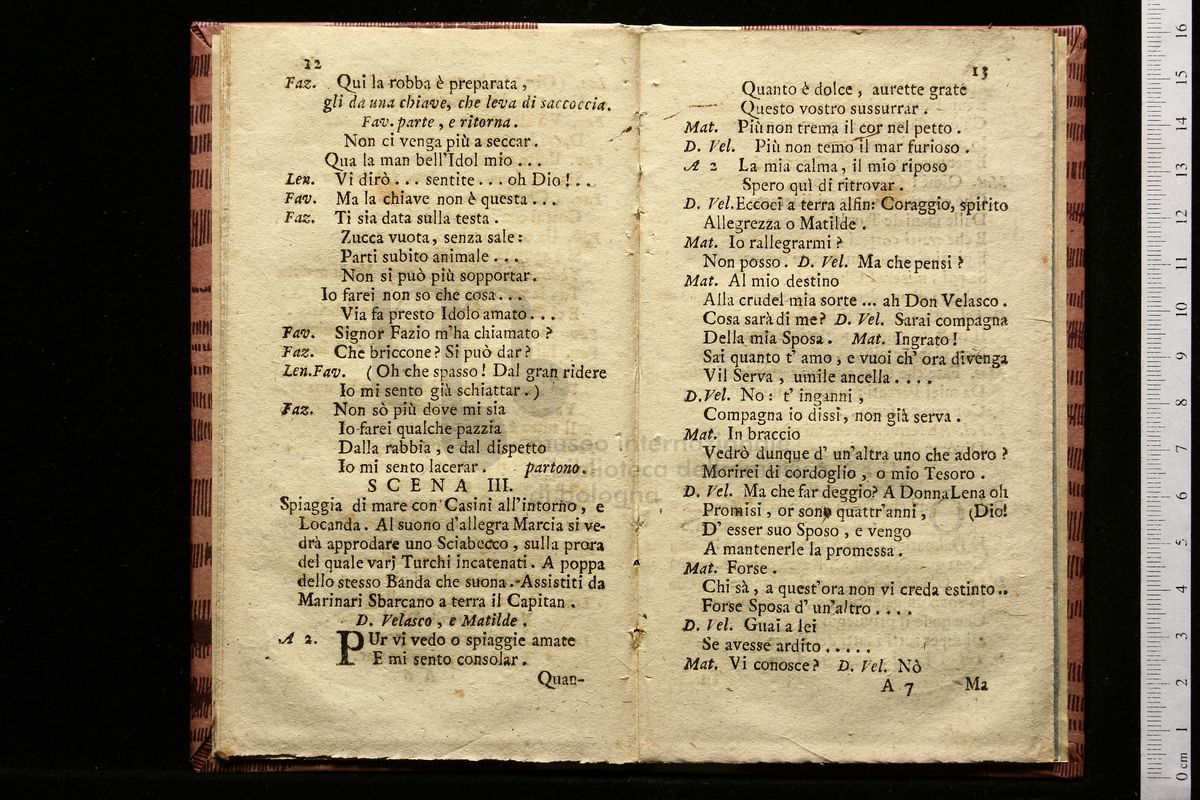 12
Faz. Qui la robba è preparata,
gli da una chiave, che leva di saccoccia.
Fav. parte, e ritorna.
Non ci venga più a seccar.
Qua la man bell'Idol mio ...
Len. Vi dirò ... sentite ... oh Dio! ..
Fav. Ma la chiave non è questa ...
Faz. Ti sia data sulla testa.
Zucca vuota, senza sale:
Parti subito animale ...
Non si può più sopportar.
Io farei non so che cosa ...
Via fa presto Idolo amato ...
Fav. Signor Fazio m'ha chiamato?
Faz. Che briccone? Si può dar?
Len.Fav. (Oh che spasso! Dal gran ridere
Io mi sento già schiattar.)
Faz. Non sò più dove mi sia
Io farei qualche pazzia
Dalla rabbia, e dal dispetto
Io mi sento lacerar. partono.
SCENA III.
Spiaggia di mare con Casini all'intorno, e
Locanda. Al suono d'allegra Marcia si ve-
drà approdare uno Sciabecco, sulla prora
del quale varj Turchi incatenati. A poppa
dello stesso Banda che suona. Assistiti da
Marinari Sbarcano a terra il Capitan.
D. Velasco, e Matilde.
A 2. PUr vi vedo o spiaggie amate
E mi sento consolar.
Quan-
13
Quanto è dolce, aurette grate
Questo vostro sussurrar.
Mat. Più non trema il cor nel petto.
D. Vel. Più non temo il mar furioso.
A 2 La mia calma, il mio riposo
Spero quì di ritrovar.
D. Vel. Eccoci a terra alfin: Coraggio, spirito
Allegrezza o Matilde.
Mat. Io rallegrarmi?
Non posso. D. Vel. Ma che pensi?
Mat. Al mio destino
Alla crudel mia sorte ... ah Don Velasco.
Cosa sarà di me? D. Vel. Sarai compagna
Della mia Sposa. Mat. Ingrato!
Sai quanto t' amo, e vuoi ch' ora divenga
Vil Serva, umile ancella ....
D.Vel. No: t' inganni,
Compagna io dissi, non già serva.
Mat. In braccio
Vedrò dunque d' un'altra uno che adoro?
Morirei di cordoglio, o mio Tesoro.
D. Vel. Ma che far deggio? A DonnaLena oh
Promisi, or sono quattr'anni, (Dio!
D' esser suo Sposo, e vengo
A mantenerle la promessa.
Mat. Forse.
Chi sà, a quest'ora non vi creda estinto..
Forse Sposa d' un'altro ....
D. Vel. Guai a lei
Se avesse ardito .....
Mat. Vi conosce? D. Vel. Nò
A 7 Ma